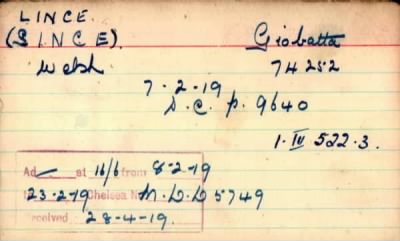 LINCE.
(SINCE). Giobatta
Welsh 74252
7.2.19
D.C. p. 9640
1.IV 522.3.
Ad at 16/6 from 8-2-19
23-2-19 Chelsea N M.D.D 5749
received 28-4-19.